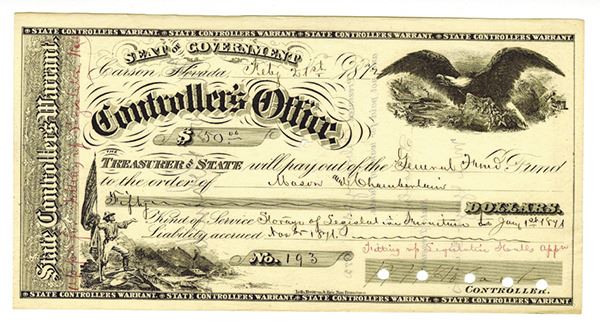 STATE CONTROLLERS WARRANT. STATE CONTROLLERS WARRANT. STATE CONTROLLERS WARRANT. STATE CONTROLLERS WARRANT.
State Controller's Warrant.
SEAT OF GOVERNMENT
Carson Nevada, Feby 21st 187
Controller's Office.
$50.00
THE TREASURER OF STATE will pay out of the General Fund Fund
to the order of Mason and Chamberlain
Fifty DOLLARS.
Kind of Service Storage of Legislative Furniture to Jany 1st 1871
Liability accrued 1871.
Fitting up Legislative Halls Appn
No. 193
CONTROLLER.
STATE CONTROLLERS WARRANT. STATE CONTROLLERS WARRANT. STATE CONTROLLERS WARRANT. STATE CONTROLLERS WARRANT.